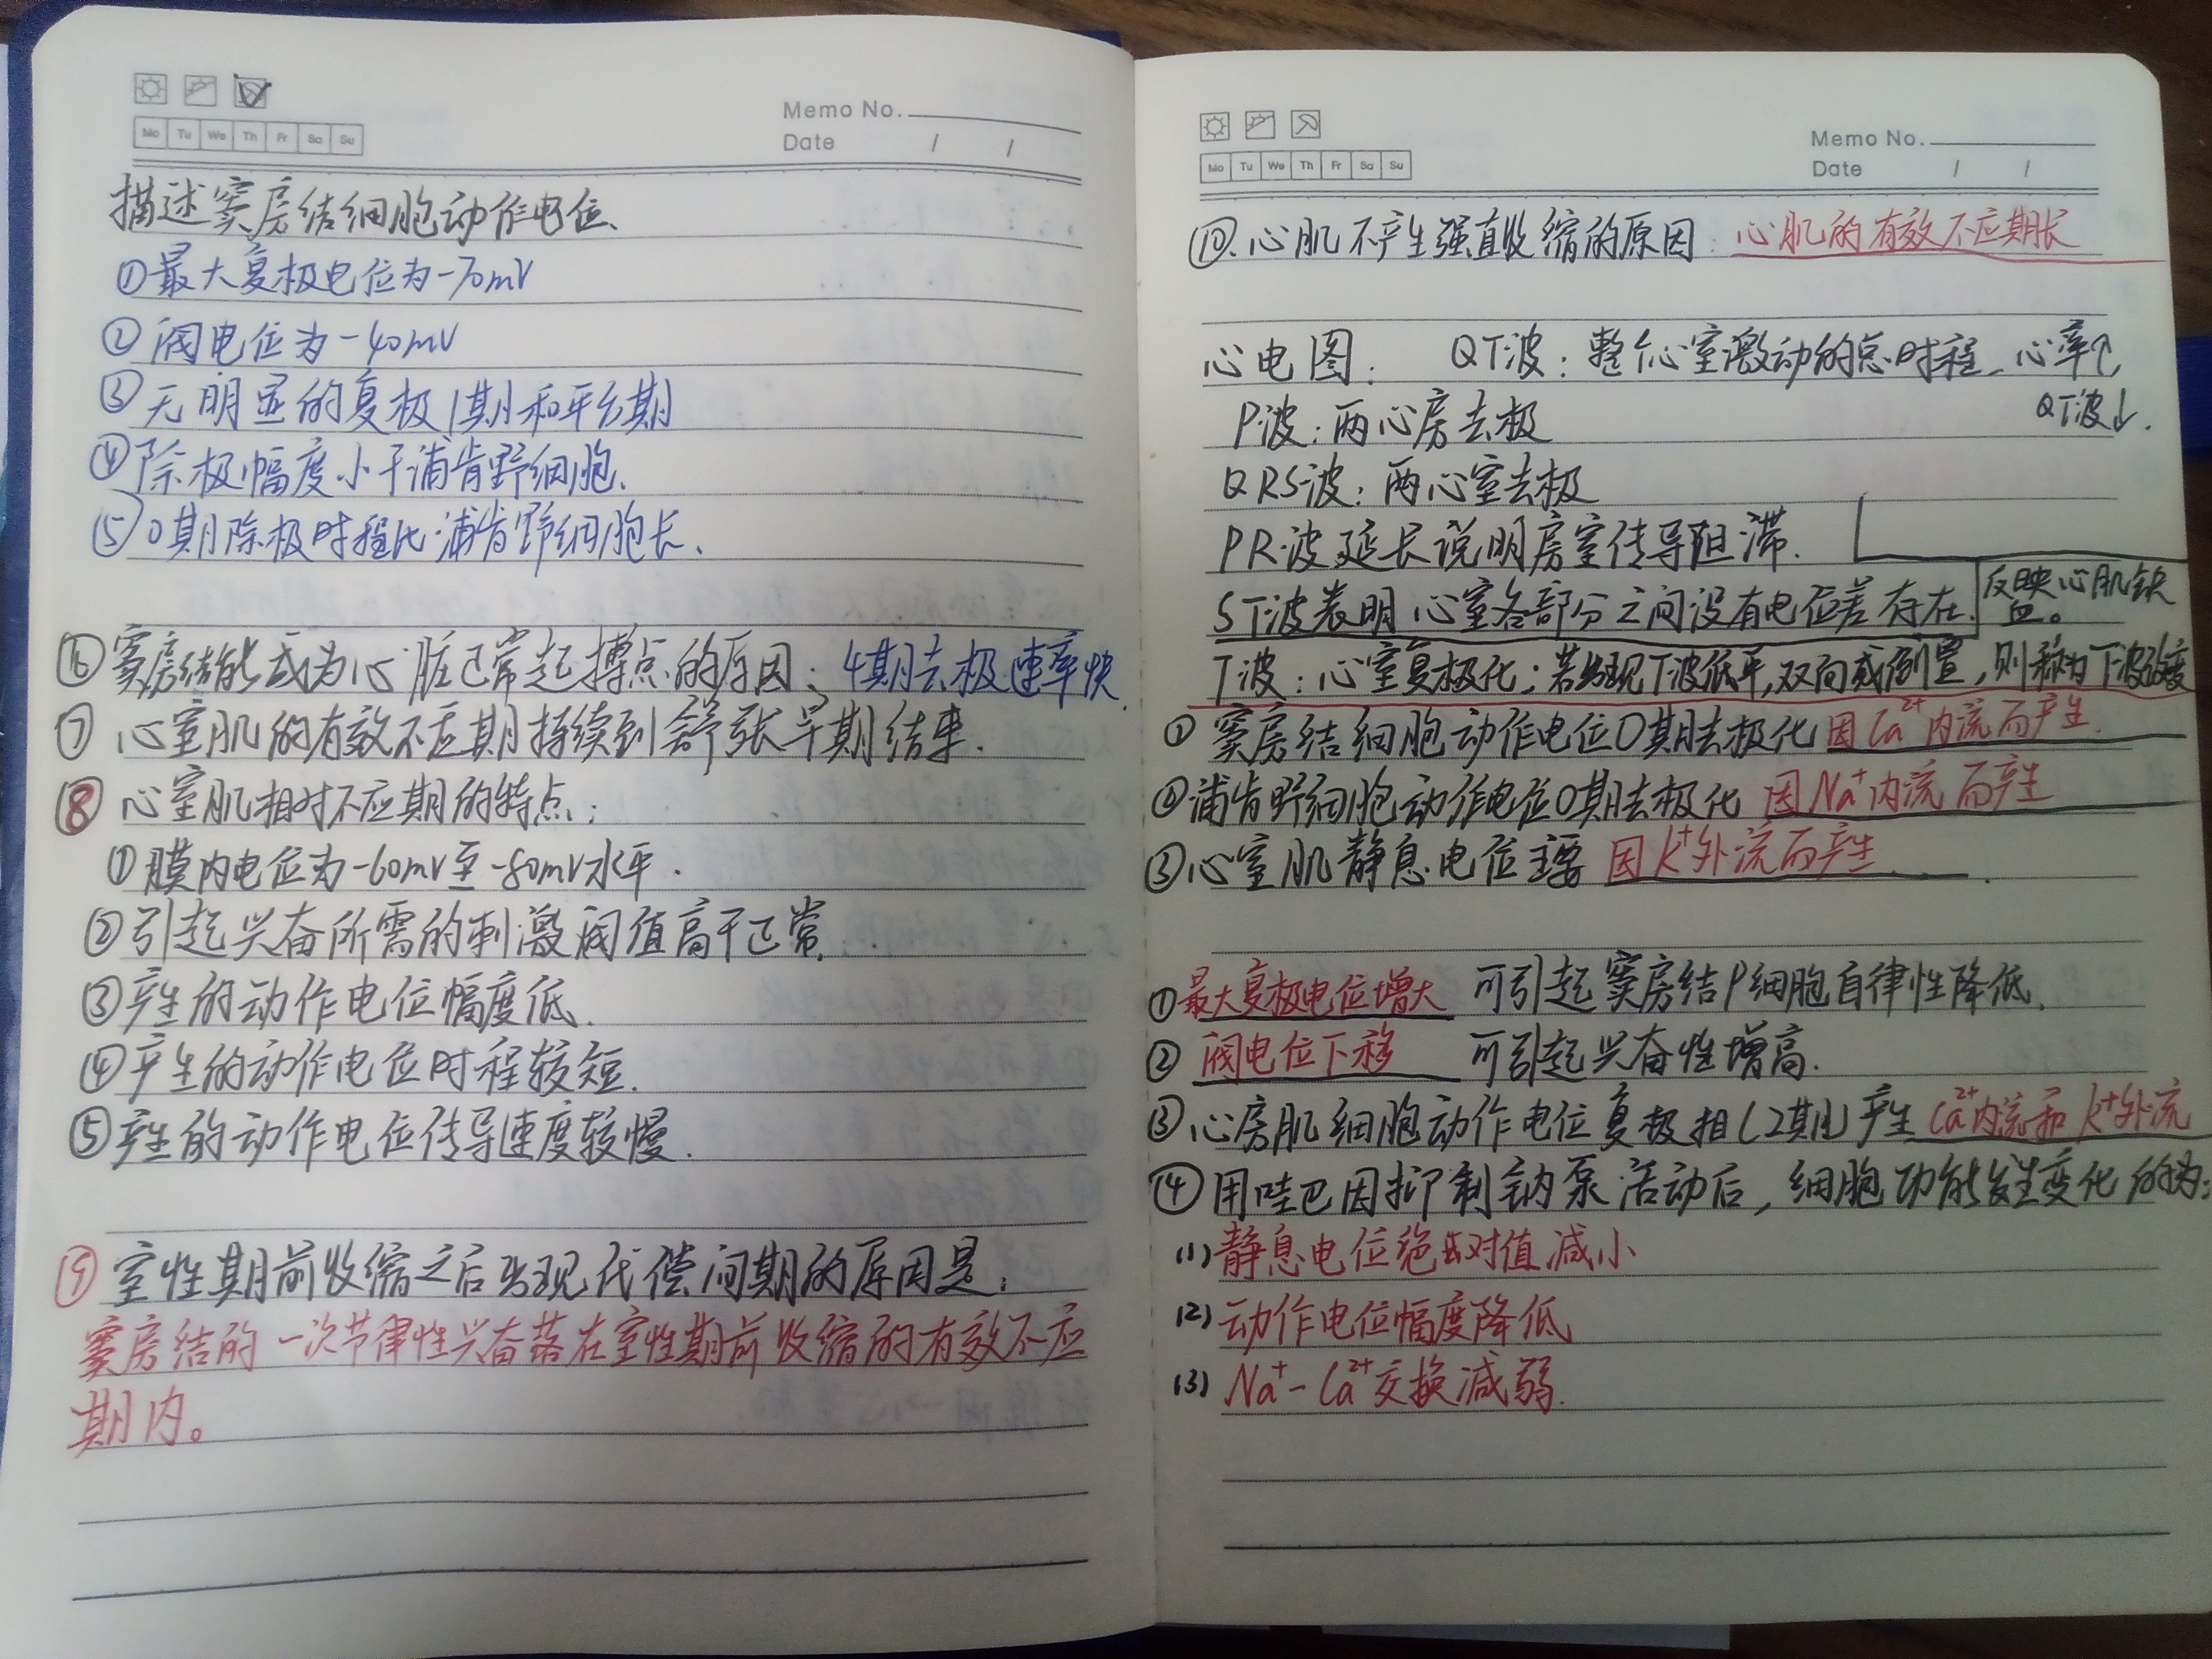 Memo No.
Mo Tu We Th Fr Sa Su
Date / /
描述窦房结细胞动作电位、
①最大复极电位为-70mV
②阈电位为-40mV
③无明显的复极1期和平台期
④除极幅度小于浦肯野细胞.
⑤0期除极时程比浦肯野细胞长、
⑥窦房结能成为心脏正常起搏点的原因：4期去极速率快.
⑦心室肌的有效不应期持续到舒张早期结束.
⑧心室肌相对不应期的特点：
①膜内电位为-60mV至-80mV水平.
②引起兴奋所需的刺激阈值高于正常.
③产生的动作电位幅度低.
④产生的动作电位时程较短.
⑤产生的动作电位传导速度较慢.
⑨室性期前收缩之后出现代偿间期的原因是：
窦房结的一次节律性兴奋落在室性期前收缩的有效不应
期内。
Memo No.
Mo Tu We Th Fr Sa Su
Date / /
⑩.心肌不产生强直收缩的原因：心肌的有效不应期长
心电图： QT波：整个心室激动的总时程，心率↑,
QT波↓.
P波：两心房去极
QRS波：两心室去极
PR波延长说明房室传导阻滞.
ST波表明心室各部分之间没有电位差存在.
反映心肌缺
血。
T波：心室复极化；若出现T波低平,双向或倒置，则称为T波改变
①窦房结细胞动作电位0期去极化因Ca²⁺内流而产生.
②浦肯野细胞动作电位0期去极化 因Na⁺内流而产生
③心室肌静息电位主要 因K⁺外流而产生.
①最大复极电位增大 可引起窦房结P细胞自律性降低.
②阈电位下移 可引起兴奋性增高.
③心房肌细胞动作电位复极相(2期)产生Ca²⁺内流和K⁺外流
④用哇巴因抑制钠泵活动后，细胞功能发生变化的为：
(1)静息电位绝对值减小
(2)动作电位幅度降低
(3)Na⁺-Ca²⁺交换减弱.